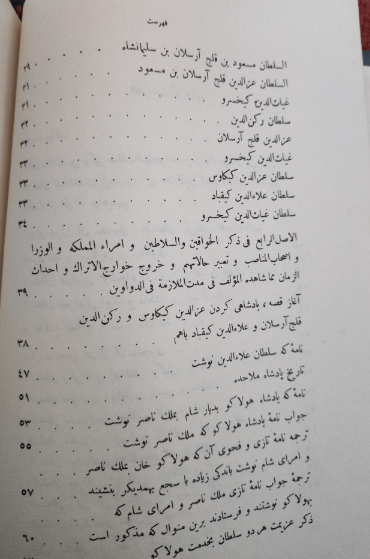 فهرست
السلطان مسعود بن قلج آرسلان بن سلیمانشاه . . . . . ۲۹
السلطان عزالدین قلج آرسلان بن مسعود . . . . . ۳۱
غیاث‌الدین کیخسرو . . . . . ۳۱
سلطان رکن‌الدین . . . . . ۳۲
عزالدین قلج آرسلان . . . . . ۳۲
غیاث‌الدین کیخسرو . . . . . ۳۳
سلطان عزالدین کیکاوس . . . . . ۳۳
سلطان علاءالدین کیقباد . . . . . ۳۳
سلطان غیاث‌الدین کیخسرو . . . . . ۳۴
الاصل الرابع فی ذکر الخواقین والسلاطین و امراء المملکه و الوزرا
و اصحاب المناصب و تعبیر حالاتهم و خروج خوارج الاتراک و احداث
الزمان مما شاهده المؤلف فی مدت الملازمة فی الدواوین . . . ۳۹
آغاز قصه، پادشاهی کردن عزالدین کیکاوس و رکن‌الدین
قلج آرسلان و علاءالدین کیقباد باهم . . . . . ۳۸
نامهٔ که سلطان علاءالدین نوشت . . . . . ۴۷
تاریخ پادشاه ملاحده . . . . . ۵۱
نامهٔ که پادشاه هولاکو بدیار شام بملک ناصر نوشت . . . ۵۳
جواب نامهٔ پادشاه هولاکو که ملک ناصر نوشت . . . ۵۵
ترجمهٔ نامهٔ تازی و فحوی آن که هولاکو خان بملک ناصر
و امرای شام نوشت باندکی زیاده با سجع بهمدیگر بنشیند . ۵۷
ترجمهٔ جواب نامهٔ تازی ملک ناصر و امرای شام که
بهولاکو نوشتند و فرستادند برین منوال که مذکور است . ۶۰
ذکر عزیمت هر دو سلطان بخدمت هولاکو